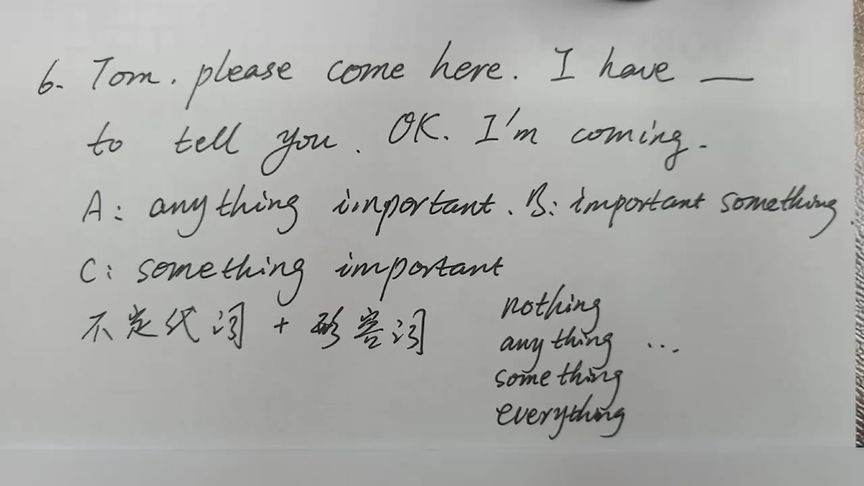 6. Tom. please come here. I have __
to tell you. OK. I'm coming.
A: anything important. B: important something
C: something important
不定代词 + 形容词
nothing
anything ...
something
everything